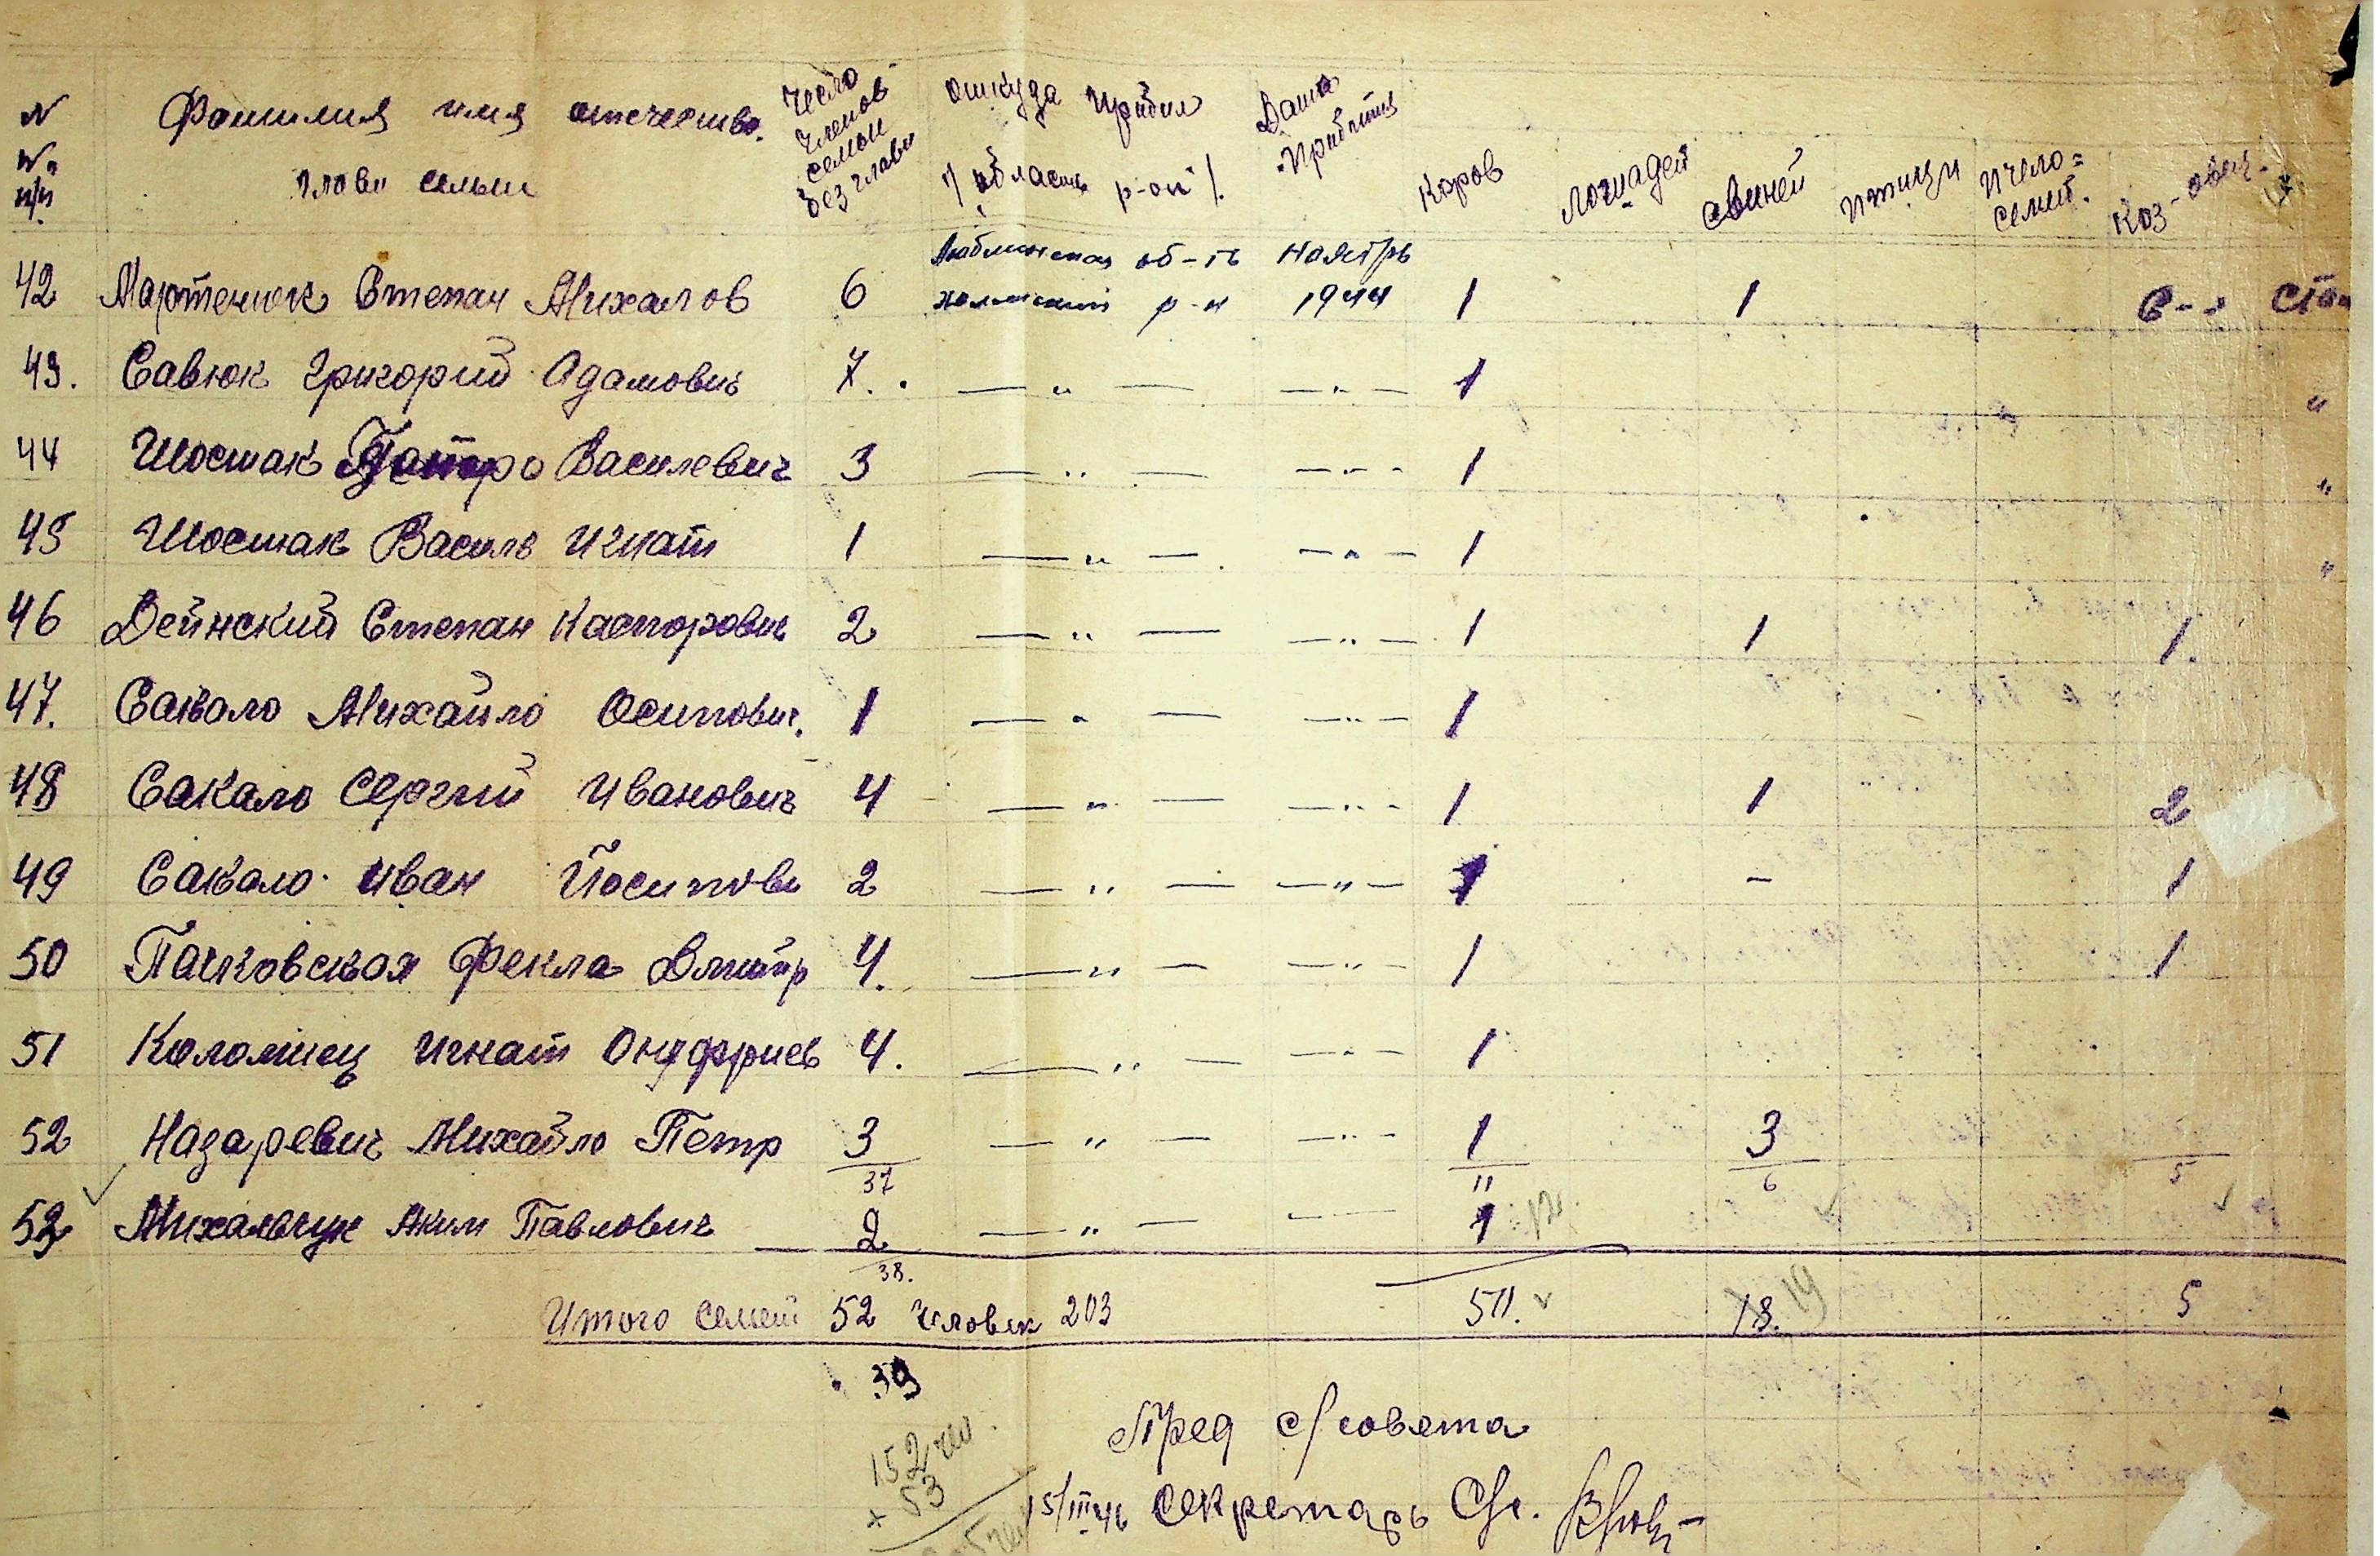 N Фамилия имя отечество. Число членов семьи без главы откуда прибил Дата прибытия
№ п/п главы семьи /область р-он/. Коров лошадей свиней птицы пчело=семей. Коз-овец.
Люблинская об-ть Ноябрь
42 Мартенюк Степан Михалов 6 Холмский р-н 1944 1 1
43. Савюк Григорий Адамович 7. — " — — " — 1 "
44 Шостак Петро Василевич 3 — " — — " — 1 "
45 Шостак Василь Игнат 1 — " — — " — 1 "
46 Дейнский Степан Каспорович 2 — " — — " — 1 1 1.
47. Сакало Михайло Осипович. 1 — " — — " — 1
48 Сакало Сергий Иванович 4 — " — — " — 1 1 2
49 Сакало Иван Йосипови 2 — " — — " — 1 - 1
50 Пачковская Фекла Дмитр 4. — " — — " — 1 1
51 Коломиец Игнат Онуфриев 4. — " — — " — 1
52 Назаревич Михайло Петр 3 — " — — " — 1 3
37 11 6 5
53 Михальчук Аким Павлович 2 — " — — 1 12.
38.
Итого семей 52 человек 203 511. 18. 19 5
39
Пред с/совета
152 чел.
+ 53
15/III 46 Секретарь С/с.